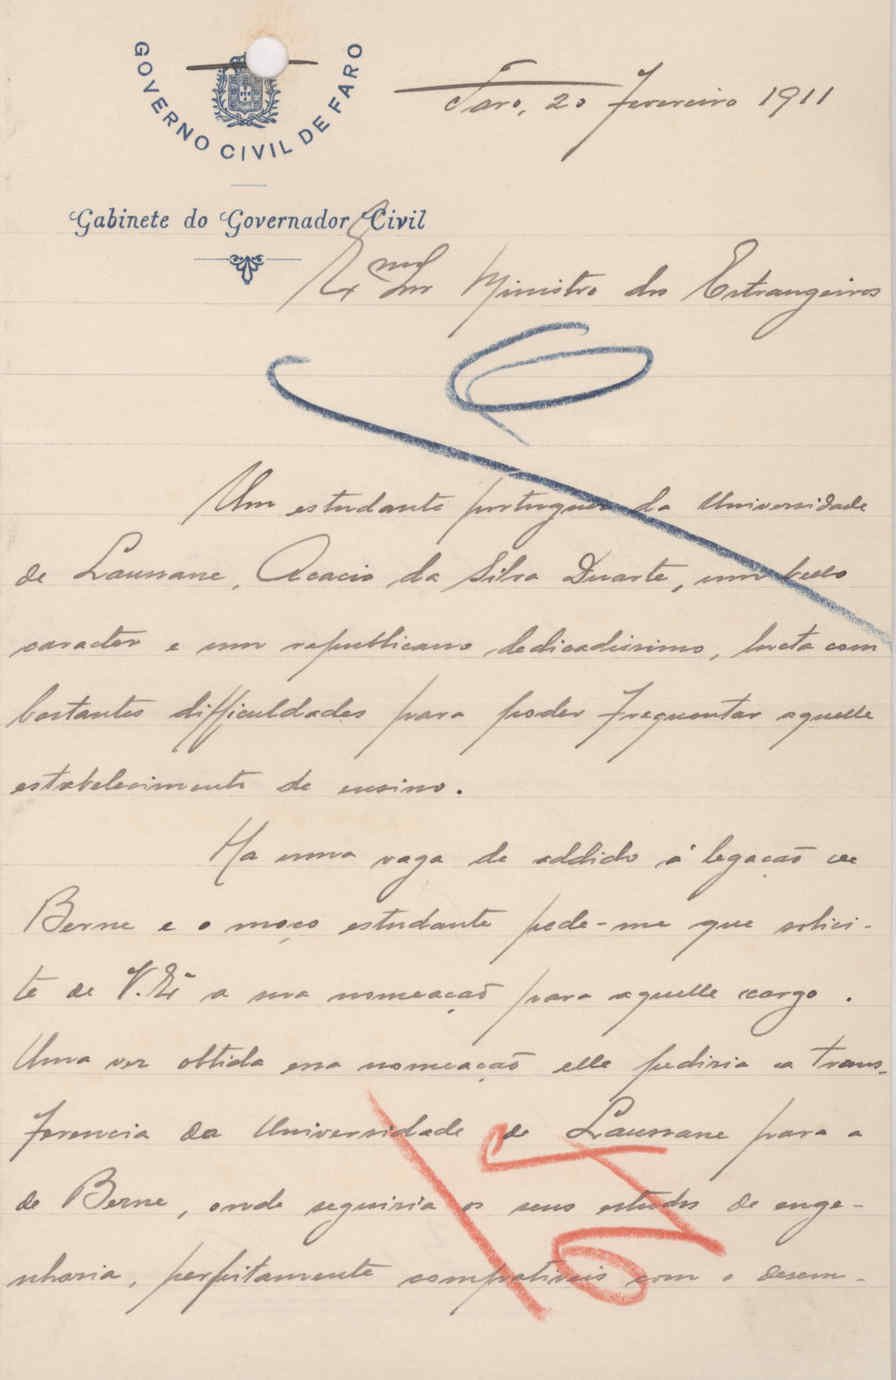 GOVERNO CIVIL DE FARO
Faro, 20 Fevereiro 1911
Gabinete do Governador Civil
Exmo Snr Ministro dos Estrangeiros
Um estudante portuguez da Universidade
de Lausane, Acacio da Silva Duarte, um bello
caracter e um republicano dedicadissimo, lucta com
bastantes difficuldades para poder frequentar aquelle
estabelecimento de ensino.
Ha uma vaga de addido á legação em
Berne e o moço estudante pede-me que solici-
te de V. Exª a sua nomeação para aquelle cargo.
Uma vez obtida essa nomeação elle pediria a trans-
ferencia da Universidade de Lausane para a
de Berne, onde seguiria os seus estudos de enge-
nharia, perfeitamente compativeis com o desem-